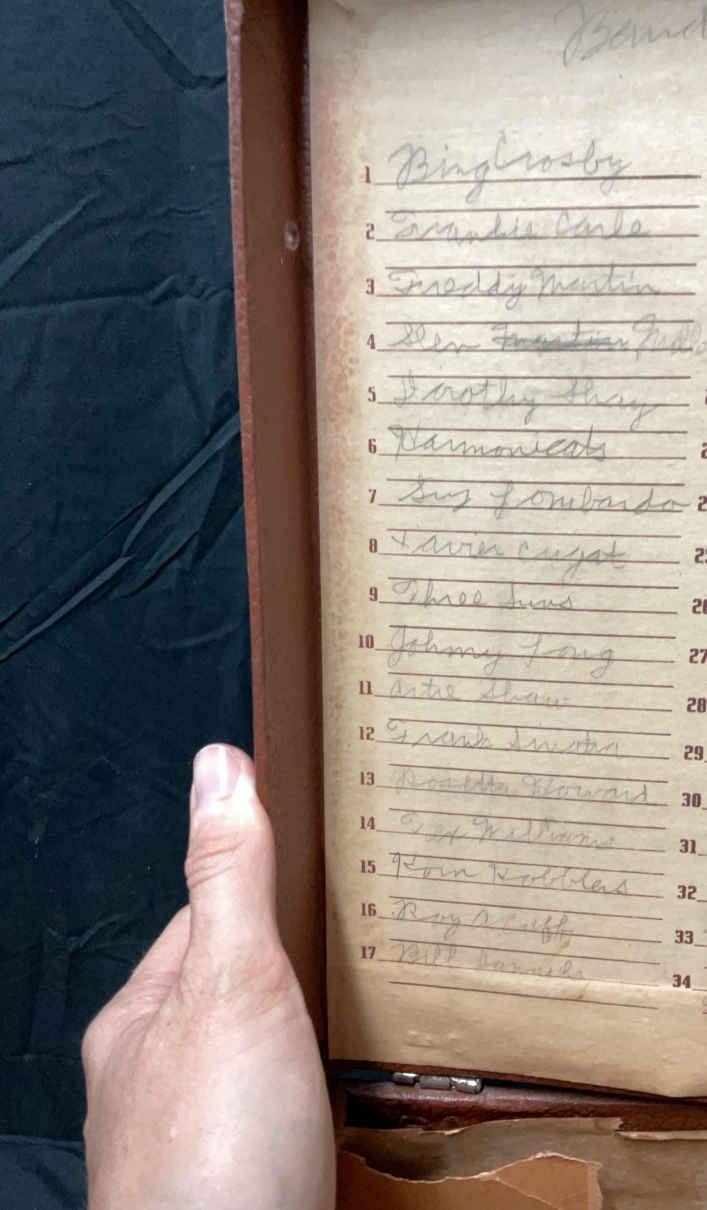 Band
1 Bing Crosby
2 Frankie Carle
3 Freddy Martin
4 Glen Martin Mill
5 Dorothy Shay
6 Harmonicats
7 Guy Lombardo
8 Xavier Cugat
9 Three Suns
10 Johnny Long
11 Artie Shaw
12 Frank Sinatra
13 Rosetta Howard
14 Tex Williams
15 Korn Kobblers
16 Roy Acuff
17 Bill
26
27
28
29
30
31
32
33
34